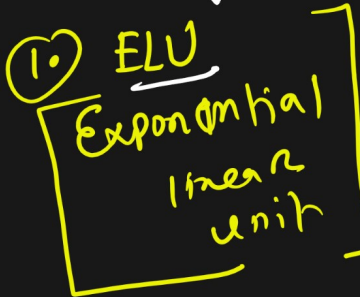 1. ELU
Exponential
linear
unit